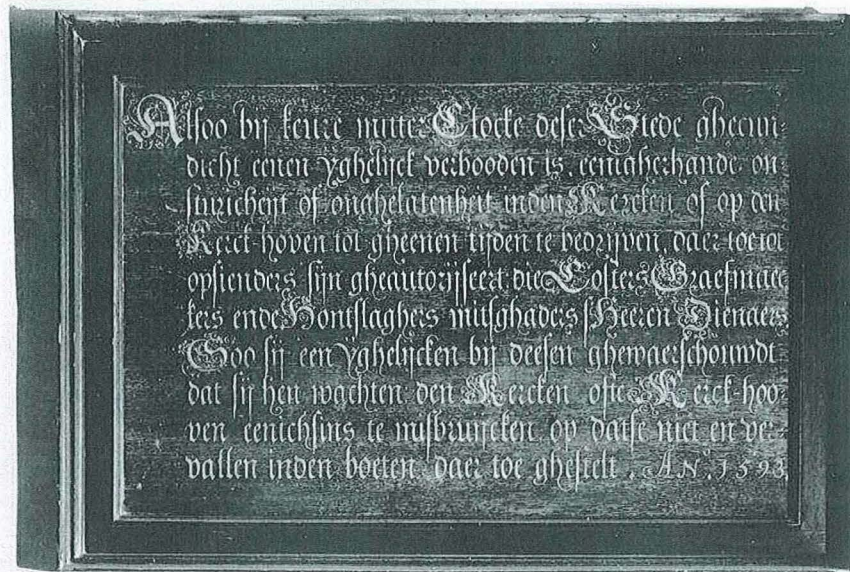 Alsoo bij keure mitter Clocke deser Stede ghecun-
dicht eenen yghelijck verbooden is, eenigherhande on-
sturicheijt of onghelatenheit inden Kercken of op den
Kerck-hoven tot gheenen tijden te bedrijven, daer toe tot
opsienders sijn gheautorijseert: die Costers Graefmae-
kers ende Hontslaghers mitsghaders s'Heeren Dienaers,
Soo sij een yghelijcken bij deesen ghewaerschouwdt
dat sij hen wachten den Kercken ofte Kerck-hoo-
ven eenichsins te misbruijcken, op datse niet en ver-
vallen inden boeten daer toe ghestelt. AN.º 1593